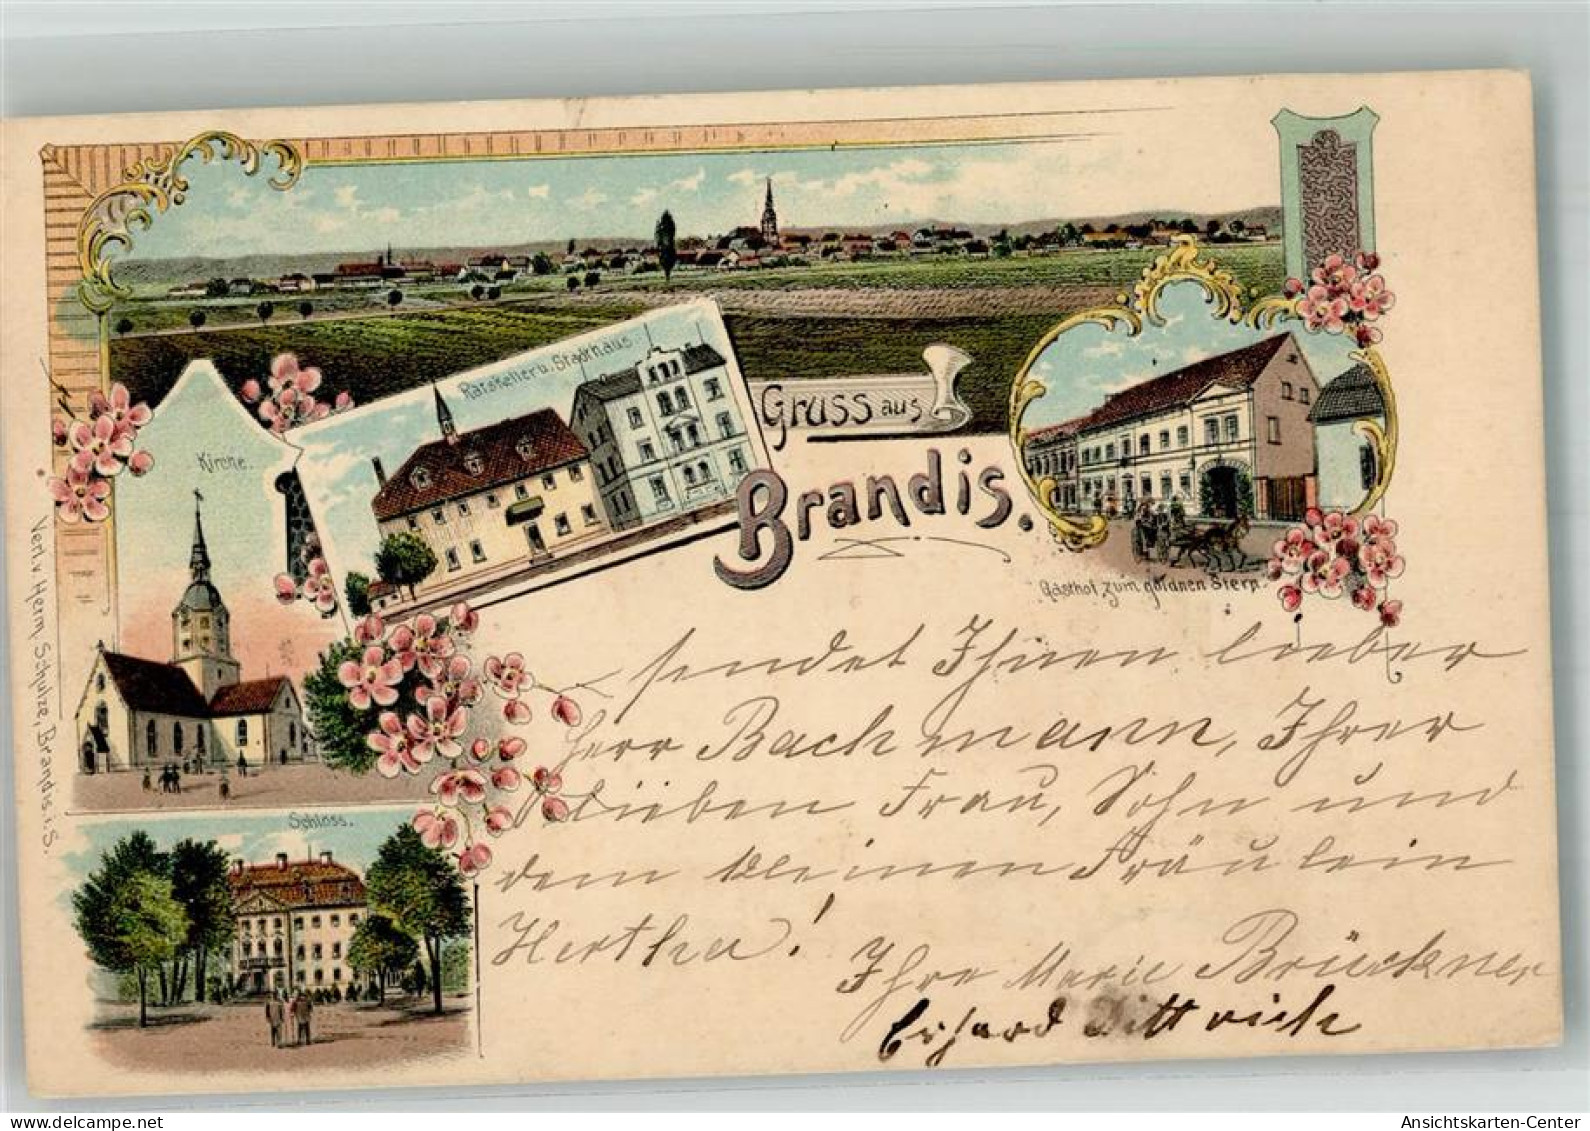 Ratskeller u. Stadthaus.
Kirche.
Gruss aus
Brandis.
Gasthof zum goldnen Stern.
Schloss.
Verl. v. Herm. Schulze, Brandis i. S.
sendet Ihnen lieber
Herr Bachmann, Ihrer
lieben Frau, Sohn und
dem kleinen Fräulein
Hertha!
Ihre Marie Brückner
Erhard Dittrich
delcampe.net
Ansichtskarten-Center